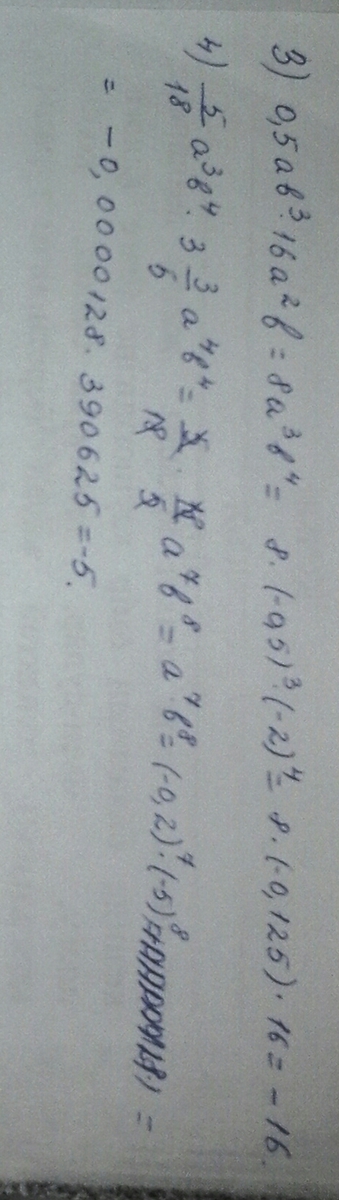 3) 0,5ab³·16a²b = 8a³b⁴ = 8·(-0,5)³·(-2)⁴ = 8·(-0,125)·16 = -16.
4) 5/18 a³b⁴ · 3 3/5 a⁴b⁴ = 5/18 · 18/5 a⁷b⁸ = a⁷b⁸ = (-0,2)⁷·(-5)⁸ =
= -0,0000128·390625 = -5.